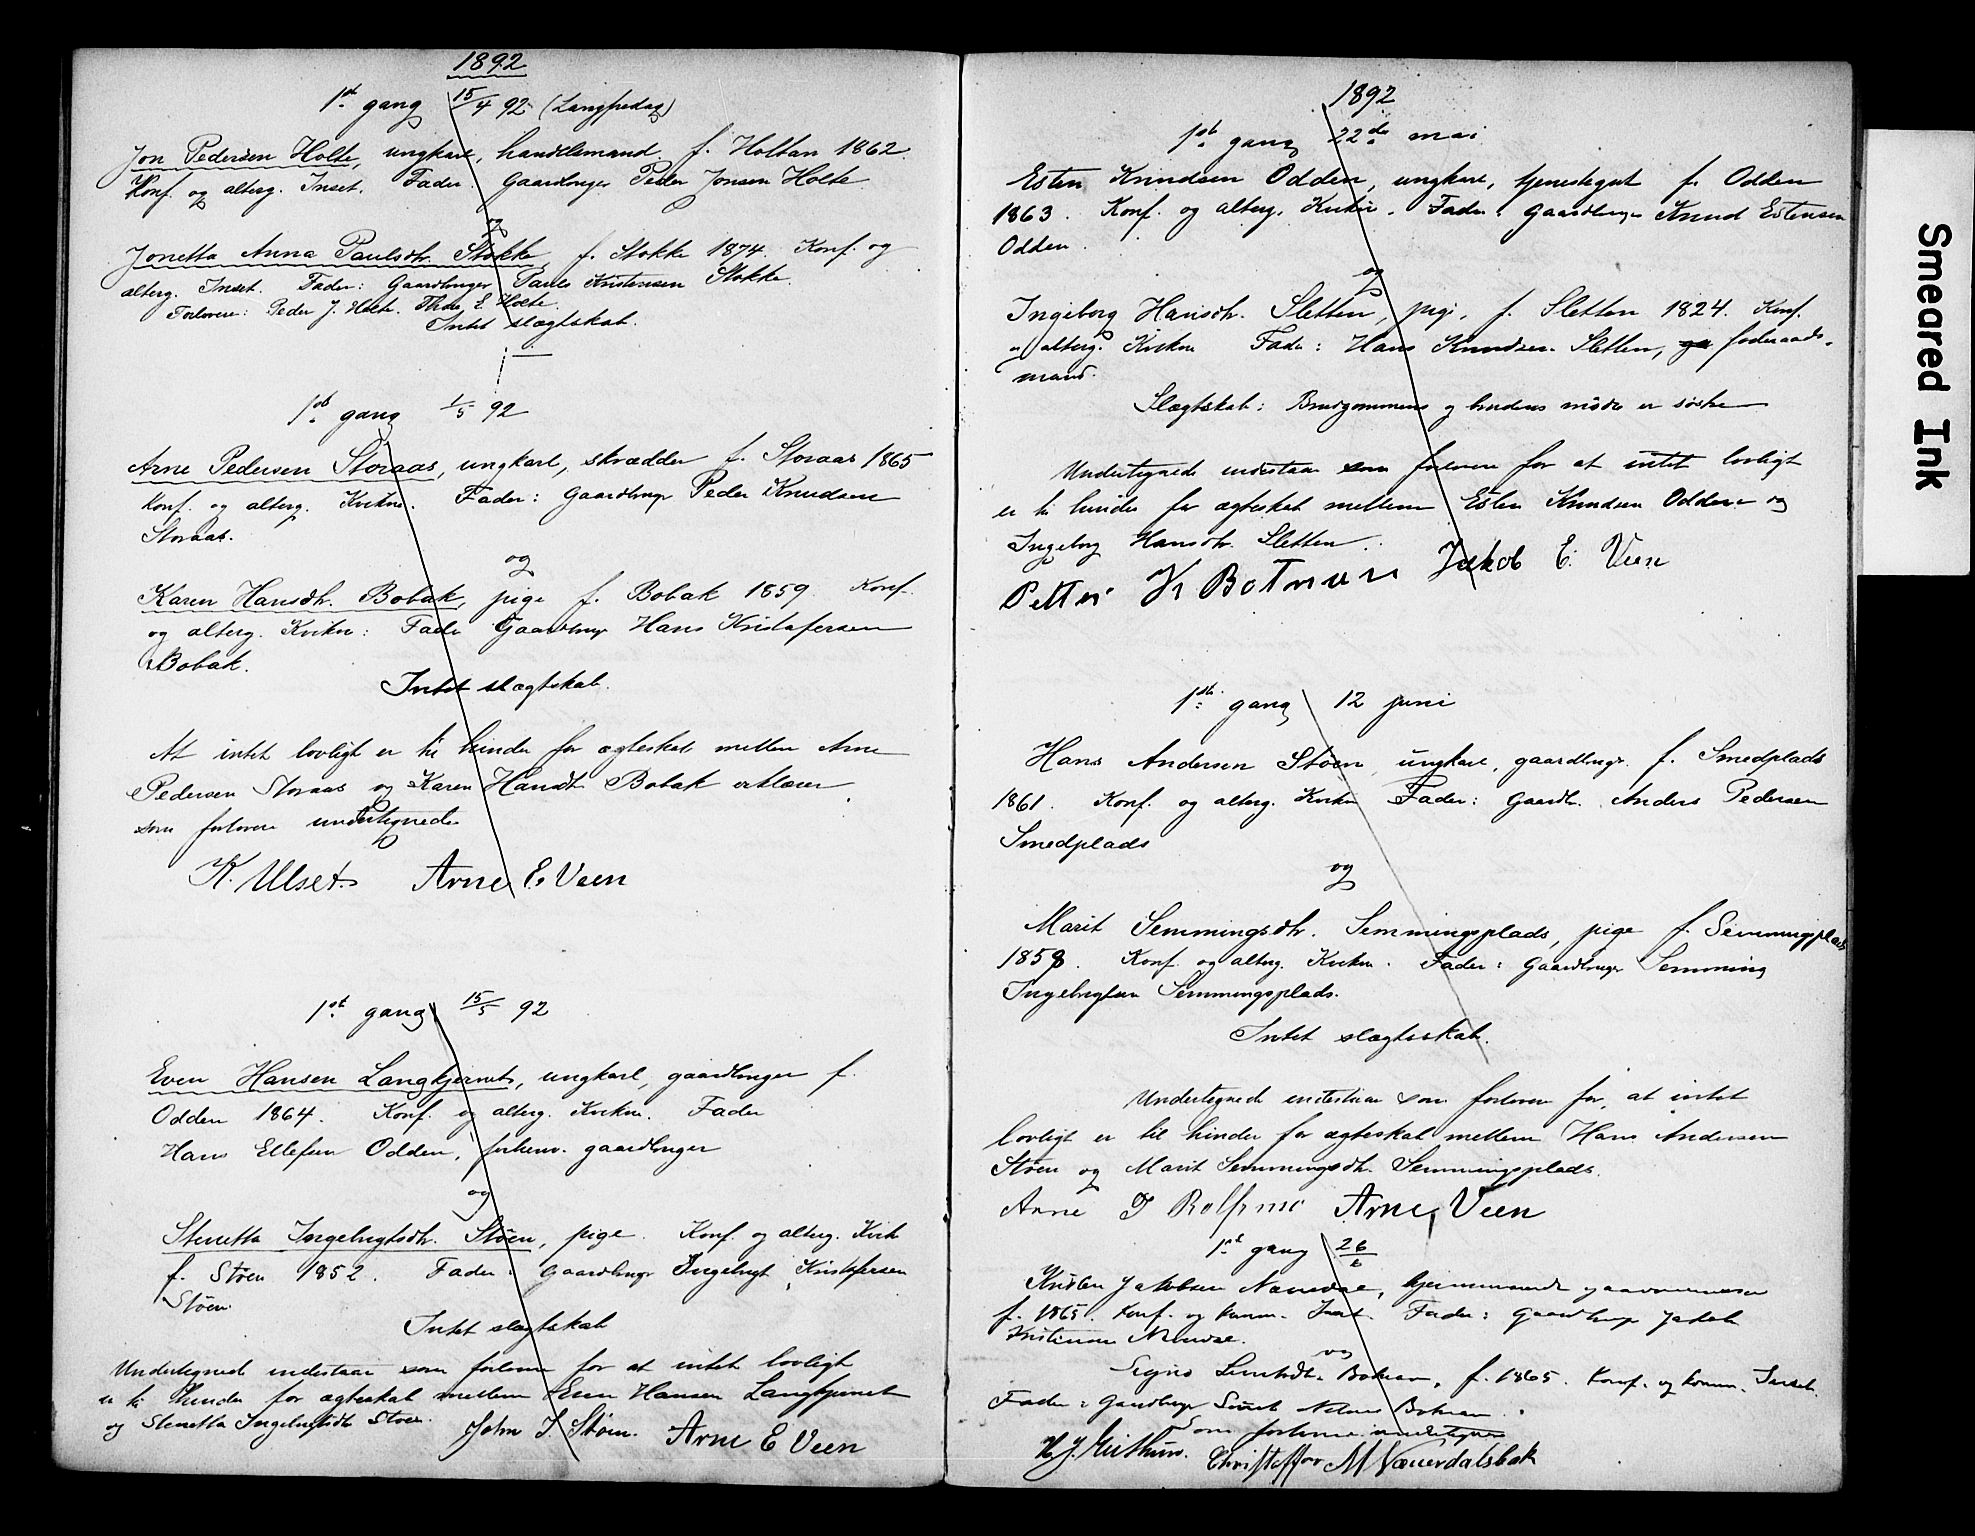 1892
1ste gang 15/4 92 (Langfredag)
Jon Pedersen Holte, ungkarl, handelsmand f. Holtan 1862.
Konf. og alterg. Inset. Fader: Gaardbruger Peder Jonsen Holte
og
Jonetta Anna Paulsdtr. Stokke, f. Stokke 1874. Konf. og
alterg. Inset. Fader: Gaardbruger Paul Kristensen Stokke.
Forlovere: Peder J. Holte. Thore E. Holte.
Intet slægtskab.
1ste gang 1/5 92
Arne Pedersen Storaas, ungkarl, skrædder f. Storaas 1865
Konf. og alterg. Kvikne. Fader: Gaardbrugr Peder Knudsen
Storaas.
og
Karen Hansdtr. Bobak, pige f. Bobak 1859. Konf.
og alterg. Kvikne: Fader Gaardbrugr Hans Kristofersen
Bobak.
Intet slægtskab.
At intet lovligt er til hinder for ægteskab mellem Arne
Pedersen Storaas og Karen Hansdtr Bobak erklærer
som forlovere undertegnede
K. Ulset. Arne E. Veen
1ste gang 15/5 92
Even Hansen Langkjernet, ungkarl, gaardbruger f.
Odden 1864. Konf. og alterg. Kvikne. Fader
Hans Ellefsen Odden, forhenv. gaardbruger
og
Stenetta Ingebrigtsdtr. Støen, pige. Konf. og alterg. Kvik
f. Støen 1852. Fader: Gaardbrugr Ingebrigt Kristofersen
Støen.
Intet slægtskab
Undertegned indestaar som forlovere for at intet lovligt
er til hinder for ægteskab mellem Even Hansen Langkjernet
og Stenetta Ingebrigtsdtr Støen.
John I. Støen. Arne E Veen
1892
1ste gang 22de mai
Esten Knudsen Odden, ungkarl, tjenestegut f. Odden
1863. Konf. og alterg. Kvikne. Fader: Gaardbruger Knud Estensen
Odden.
og
Ingeborg Hansdtr. Sletten, pige, f. Sletten 1824. Konf.
" alterg. Kvikne Fader: Hans Knudsen Sletten, føderaads-
mand.
Slægtskab: Brudgommens og brudens mødre er søstre
Undertegnede indestaar som forlovere for at intet lovligt
er til hinder for ægteskab mellem Esten Knudsen Odden og
Ingeborg Hansdtr. Sletten.
Petter K Jakob E. Veen
1ste gang 12 juni
Hans Andersen Støen, ungkarl, gaardbrugr. f. Smedplads
1861. Konf. og alterg. Kvikne Fader: Gaardb. Anders Pedersen
Smedplads
og
Marit Semmingsdtr. Semmingsplads, pige f. Semmingsplads
1858. Konf. og alterg. Kvikne. Fader: Gaardbruger Semming
Ingebrigtsen Semmingsplads.
Intet slægtsskab.
Undertegnede indestaar som forlovere for, at intet
lovligt er til hinder for ægteskab mellem Hans Andersen
Støen og Marit Semmingsdtr. Semmingsplads.
Arne Arne Veen
1ste gang 26/6
Kristen Jakobsen
f. 1865. Konf. og komm. Inset. Fader: Gaardbruger Jakob
Kristensen
og
f. 1865. Konf. og komm. Inset.
Fader: Gaardbruger
Som forlovere undertegnede
Christoffer M Næverdalsbak
Smeared Ink